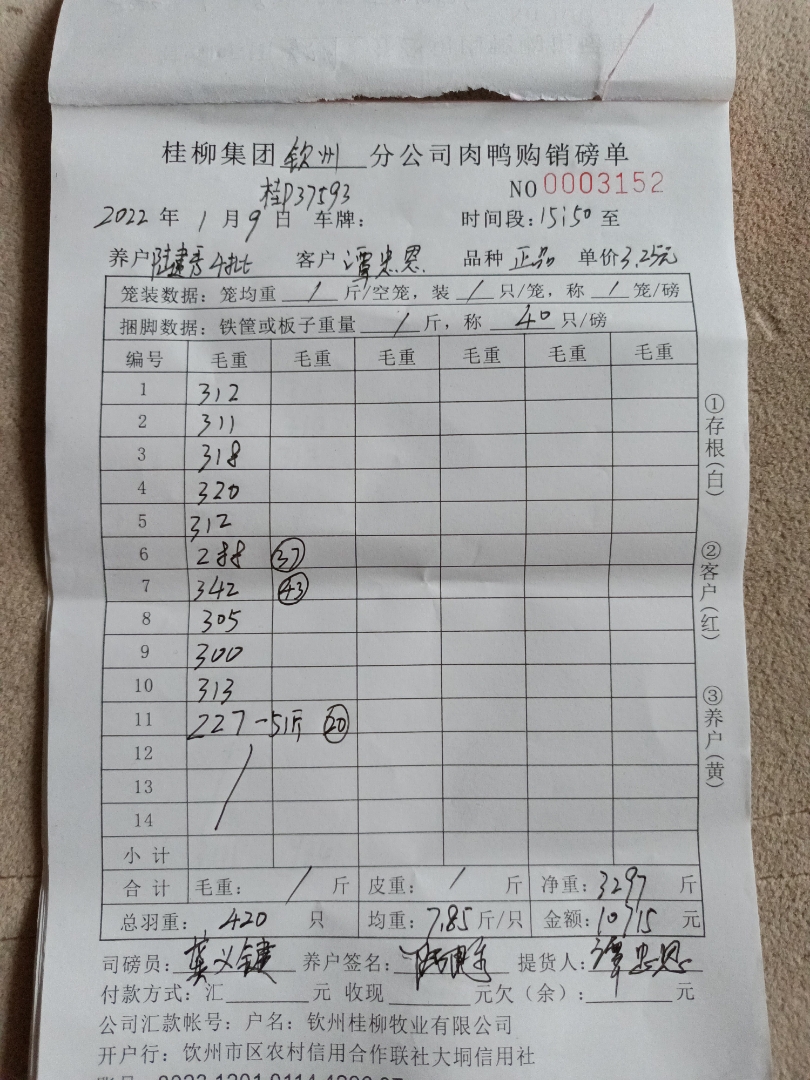 桂柳集团 钦州 分公司肉鸭购销磅单
桂P37593
NO 0003152
2022 年 1 月 9 日 车牌： 时间段：15:50 至
养户 客户 谭忠恩 品种 正品 单价 3.25元
笼装数据：笼均重 / 斤/空笼，装 / 只/笼，称 / 笼/磅
捆脚数据：铁筐或板子重量 / 斤，称 40 只/磅
编号 毛重 毛重 毛重 毛重 毛重 毛重
1 312
2 311
3 318
4 320
5 312
6 288 37
7 342 43
8 305
9 300
10 313
11 227-51斤 20
12
13
14
小计
合计 毛重： / 斤 皮重： / 斤 净重：3297 斤
总羽重： 420 只 均重：7.85 斤/只 金额：10715 元
司磅员： 养户签名： 提货人：谭忠恩
付款方式：汇 元 收现 元欠（余）： 元
公司汇款帐号：户名：钦州桂柳牧业有限公司
开户行：钦州市区农村信用合作联社大垌信用社
①存根（白）
②客户（红）
③养户（黄）